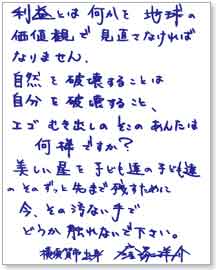 利益とは何かを地球の
価値観で見直さなければ
なりません.
自然を破壊することは
自分を破壊すること、
エゴむき出しのそこのあんたは
何様ですか?
美しい星を子ども達の子ども達
のそのずっと先まで残すために
今、その汚ない手で
どうか触れないで下さい。
横須賀市出身